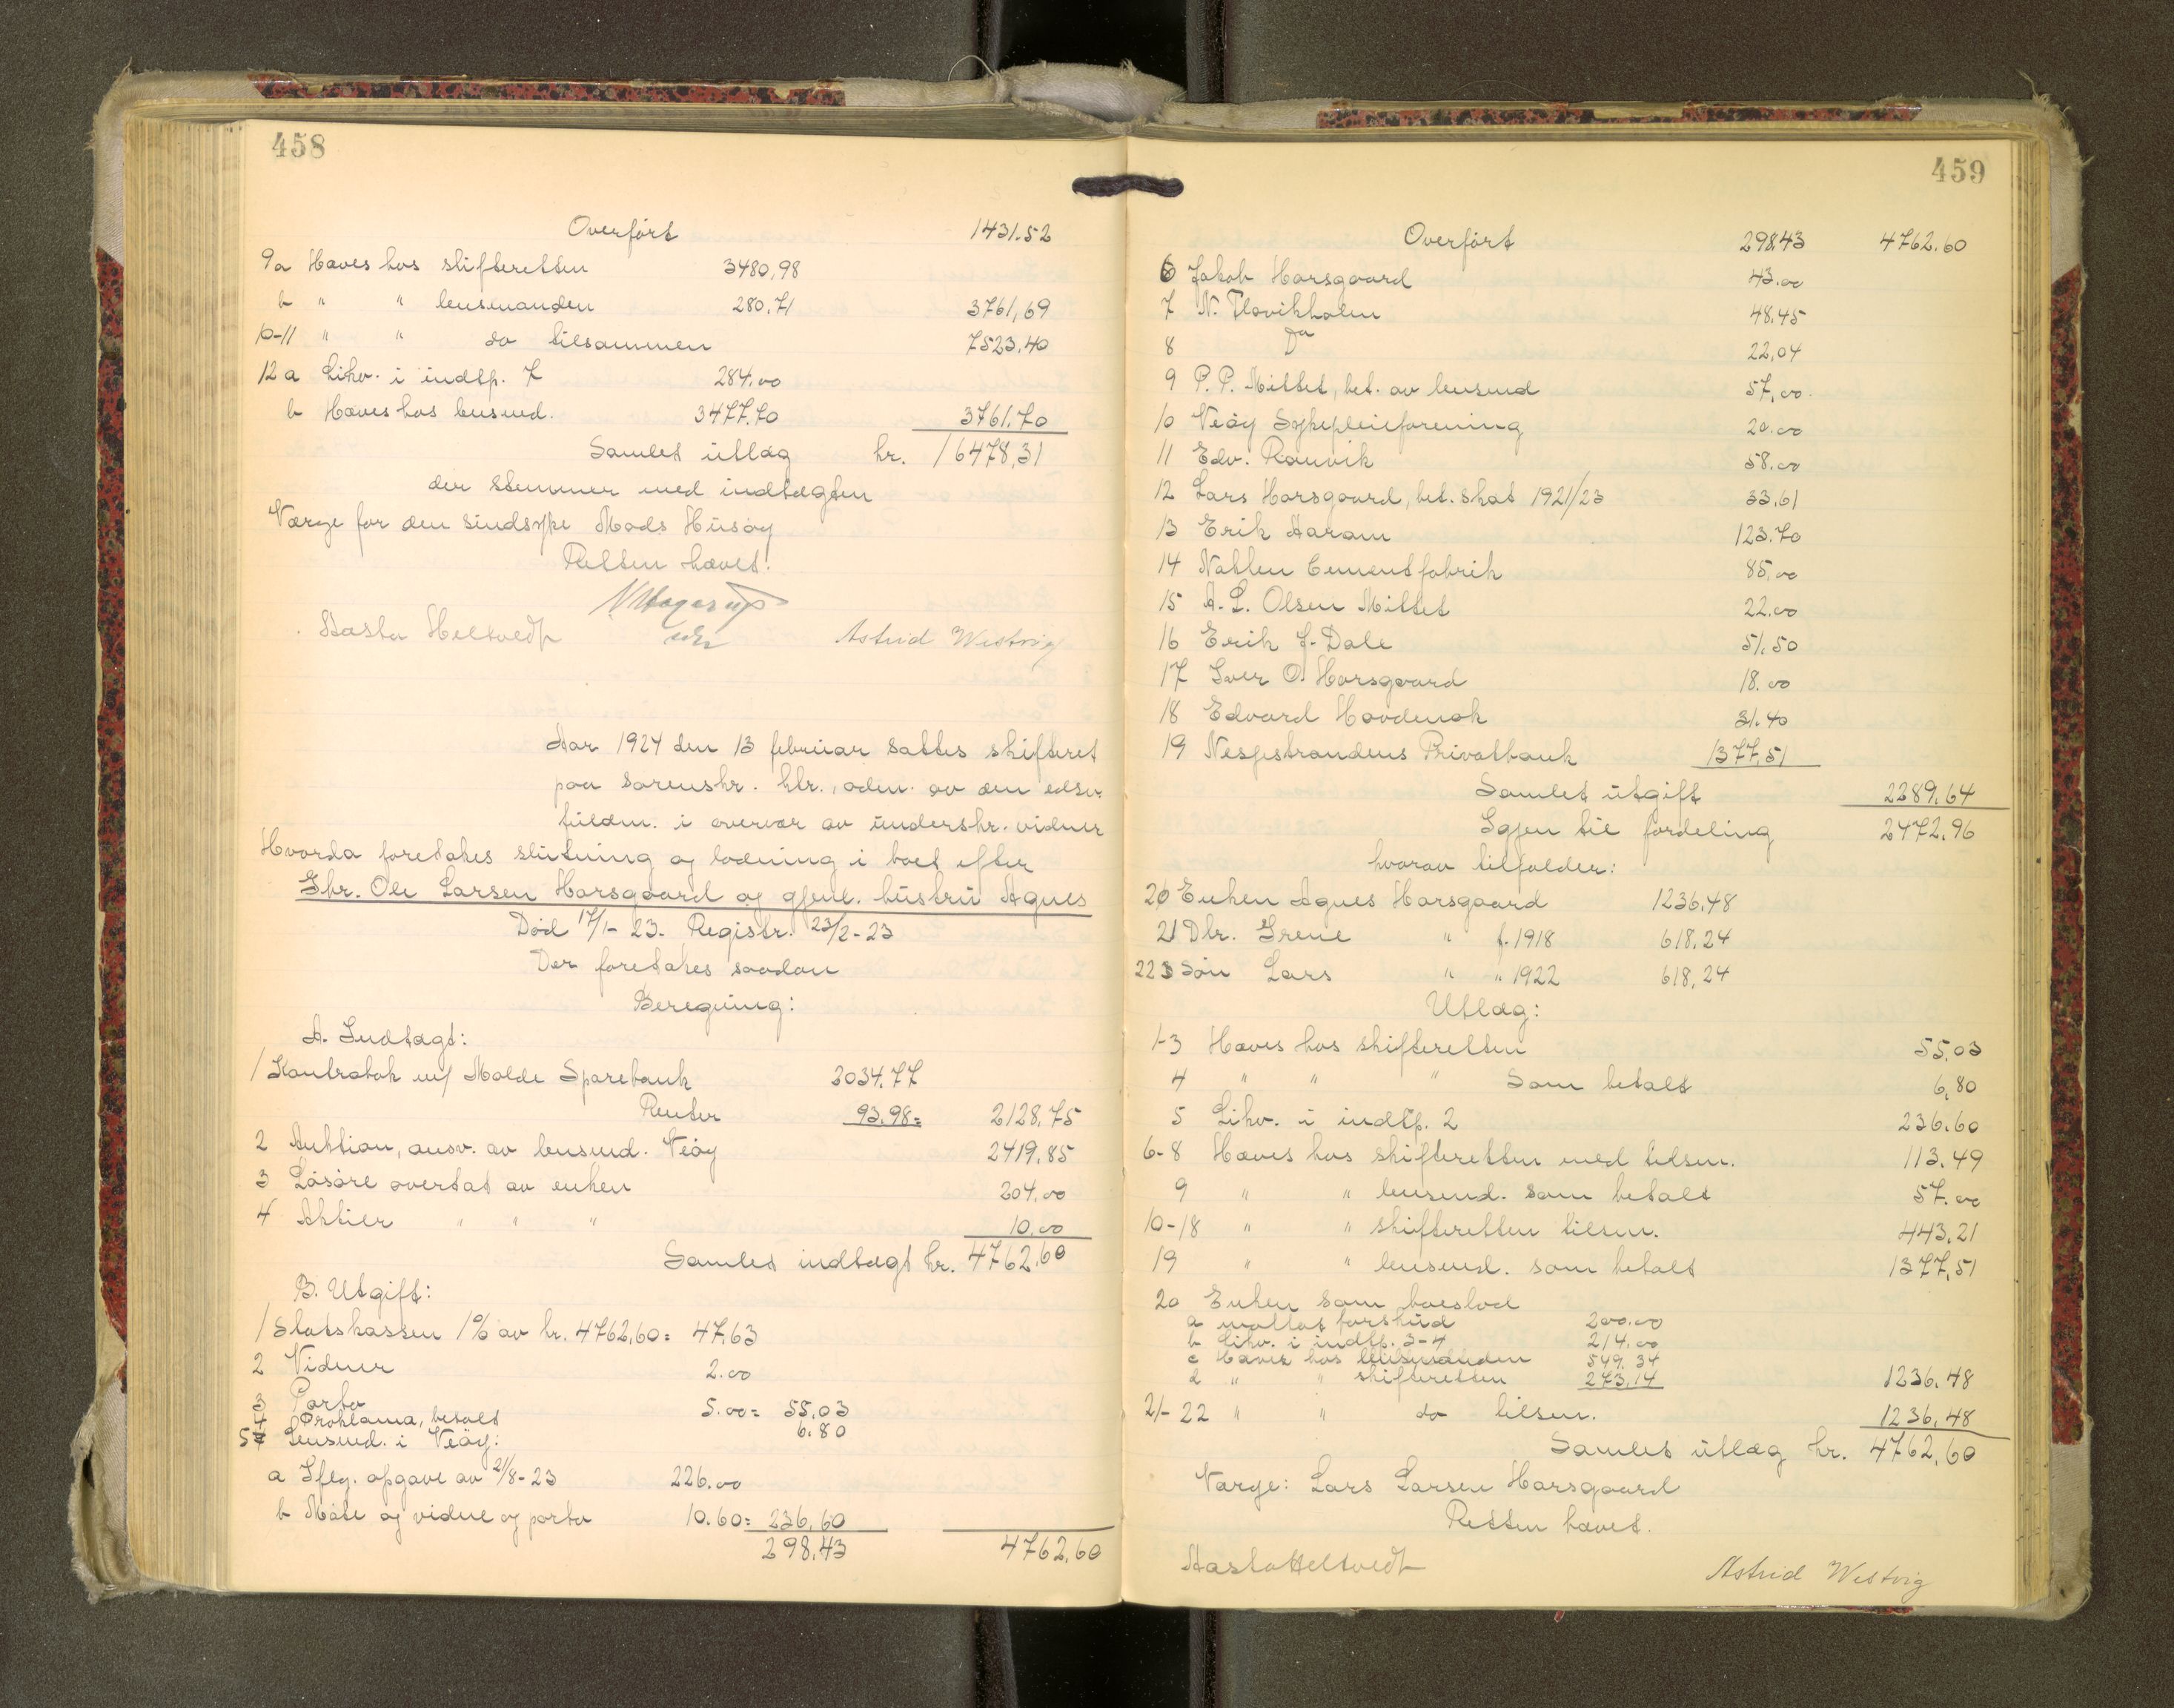 458
Overført 1431.52
9a Haves hos skifteretten 3480,98
b " " lensmanden 280.71 3761,69
10-11 " " do tilsammen 7523,40
12a Likv. i indtp. 7 284.00
b Haves hos lensmd. 3477.70 3761.70
Samlet utlæg kr. 16478,31
der stemmer med indtægten
Værge for den sindsyke Mads Husøy
Retten hævet.
Aasta Heltvedt Astrid Westvig
Aar 1924 den 13 februar sattes skifteret
paa sorenskr. ktr., adm. av den edsv.
fuldm. i overvær av underskr. vidner
Hvorda foretakes slutning og lodning i boet efter
Gbr. Ole Larsen Horsgaard og gjenl. hustru Agnes
Død 17/1-23. Registr. 23/2-23
Der foretakes saadan
Beregning:
A. Indtægt:
1 Kontrabok m/ Molde Sparebank 2034.77
Renter 93.98= 2128,75
2 Auktion, ansv. av lensmd. Veøy 2419,85
3 Løsøre overtat av enken 204.00
4 Aktier " " " 10.00
Samlet indtægt kr. 4762,60
B. Utgift:
1 Statskassen 1% av kr. 4762,60= 47,63
2 Vidner 2.00
3 Porto 5.00= 55,03
4 Proklama, betalt 6.80
5 Lensmd. i Veøy:
a Iflg. opgave av 21/8-23 226.00
b Møte og vidne og porto 10.60= 236,60
298,43 4762,60
459
Overført 298.43 4762.60
6 Jakob Horsgaard 43.00
7 N. Flovikholm 48.45
8 Do 22,04
9 P. P. Mittet, bet. av lensmd 57,00
10 Veøy Sykepleieforening 20.00
11 Edv. Rauvik 58.00
12 Lars Horsgaard, bet. skat 1921/23 33,61
13 Erik Aaram 123.70
14 Nakken Cementfabrik 85,00
15 A. L. Olsen Mittet 22.00
16 Erik J. Dale 51.50
17 Iver O. Horsgaard 18.00
18 Edvard Hovdenak 31.40
19 Nesjestrandens Privatbank 1377,51
Samlet utgift 2289,64
Igjen til fordeling 2472,96
hvorav tilfalder:
20 Enken Agnes Horsgaard 1236.48
21 Dtr. Irene " f. 1918 618.24
22 Søn Lars " " 1922 618,24
Utlæg:
1-3 Haves hos skifteretten 55,03
4 " " " Som betalt 6,80
5 Likv. i indtp. 2 236.60
6-8 Haves hos skifteretten med tilsm. 113.49
9 " " lensmd. som betalt 57.00
10-18 " " skifteretten tilsm. 443.21
19 " " lensmd. som betalt 1377,51
20 Enken som boeslod
a mottat forskud 200.00
b Likv. i indtp. 3-4 214.00
c Haves hos lensmanden 549.34
d " " skifteretten 273,14 1236.48
21-22 " " do tilsm. 1236,48
Samlet utlæg kr. 4762,60
Værge: Lars Larsen Horsgaard
Retten hævet.
Aasta Heltvedt Astrid Westvig